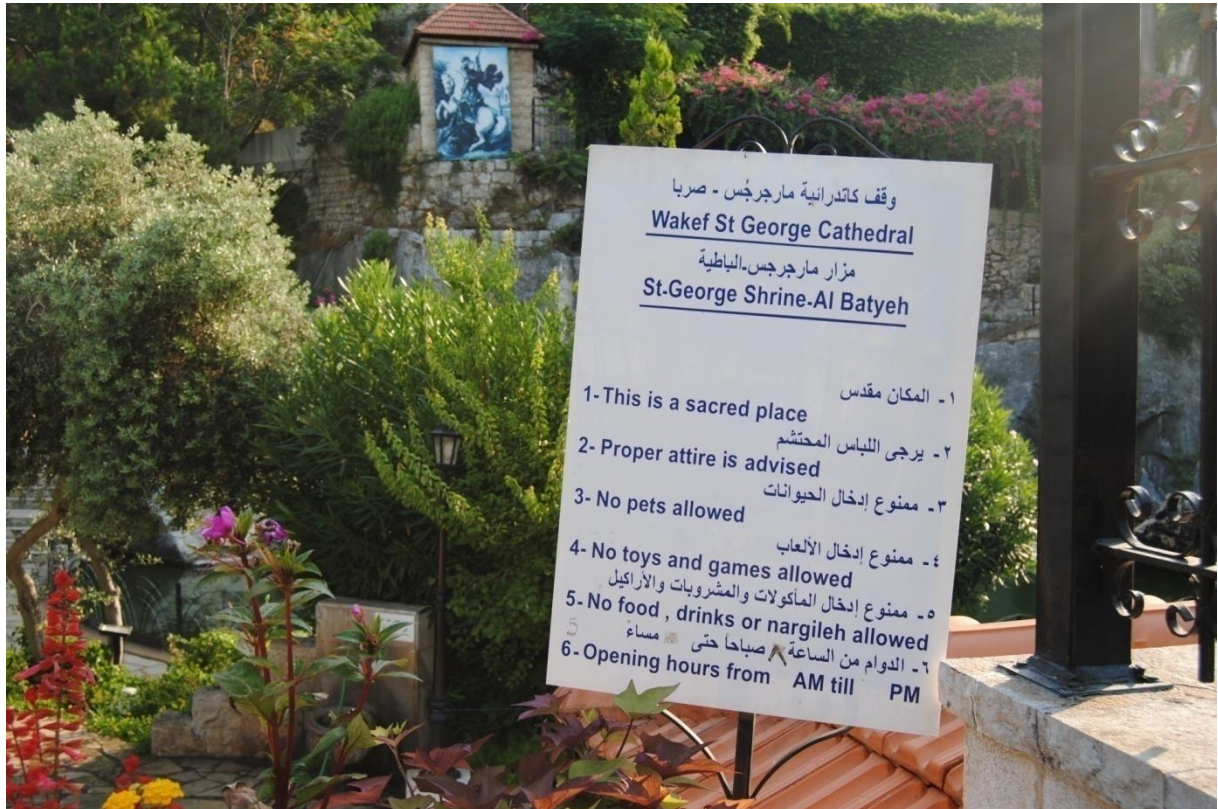 وقف كاتدرائية مارجرجس - صربا
Wakef St George Cathedral
مزار مارجرجس-الباطية
St-George Shrine-Al Batyeh
١- المكان مقدس
1- This is a sacred place
٢- يرجى اللباس المحتشم
2- Proper attire is advised
٣- ممنوع إدخال الحيوانات
3- No pets allowed
٤- ممنوع إدخال الألعاب
4- No toys and games allowed
٥- ممنوع إدخال المأكولات والمشروبات والأراكيل
5- No food , drinks or nargileh allowed
٦- الدوام من الساعة ٨ صباحاً حتى مساءً
6- Opening hours from AM till PM